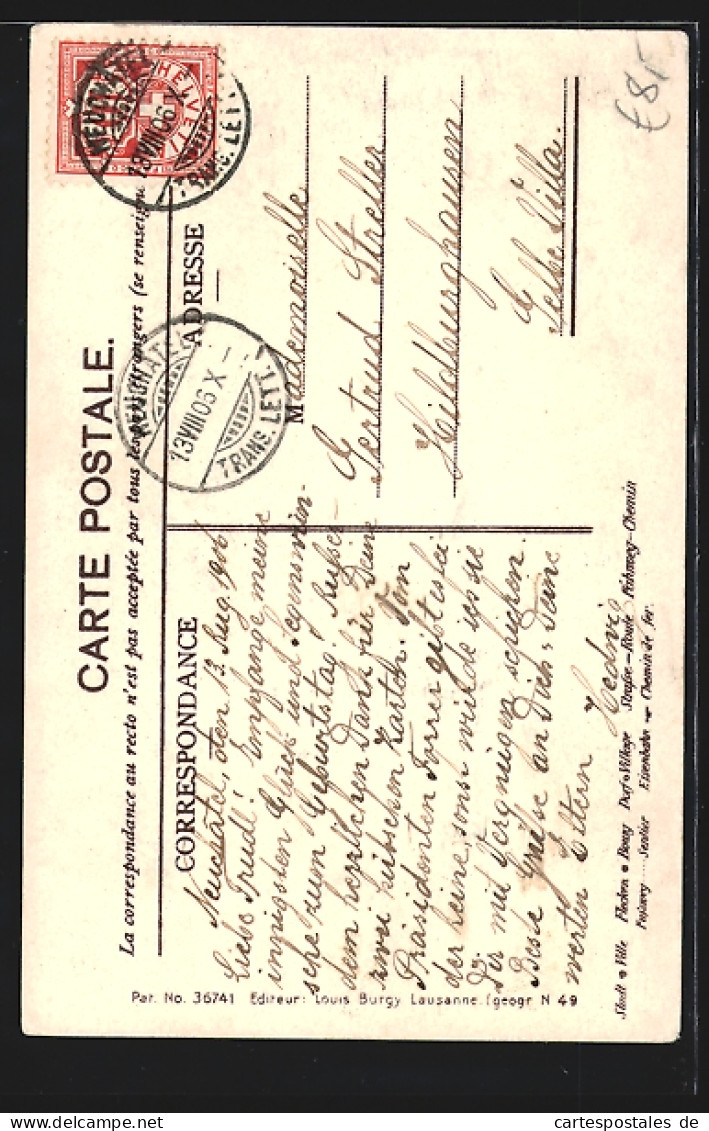 CARTE POSTALE.
La correspondance au recto n'est pas acceptée par tous les pays étrangers (se renseigner
CORRESPONDANCE
Neuchâtel, den 13. Aug 1906
Liebe Trudl! Empfange meine
innigsten Glück und Segenswün-
sche zum Geburtstag. Ausser-
dem herzlichen Dank für Deine
zwei hübschen Karten. Vom
Präsidenten Forrer gibt es lei
der keine, sonst würde ich sie
Dir mit Vergnügen schicken.
Beste Grüße an Dich, Deine
werten Eltern Hedwig
ADRESSE
Mademoiselle
Gertrud Streller
Hildburghausen
Villa.
NEUCHATEL
13.VIII.06 X
TRANS. LETT.
HELVETIA
NEUCHATEL
13.VIII.06 X
TRANS. LETT.
Par. No. 36741 Editeur: Louis Burgy Lausanne. (geogr N 49
Stadt Ville Flecken Bourg Dorf Village Straße-Route Fahrweg-Chemin
Fußweg Sentier Eisenbahn Chemin de fer.
€8
cartespostales de